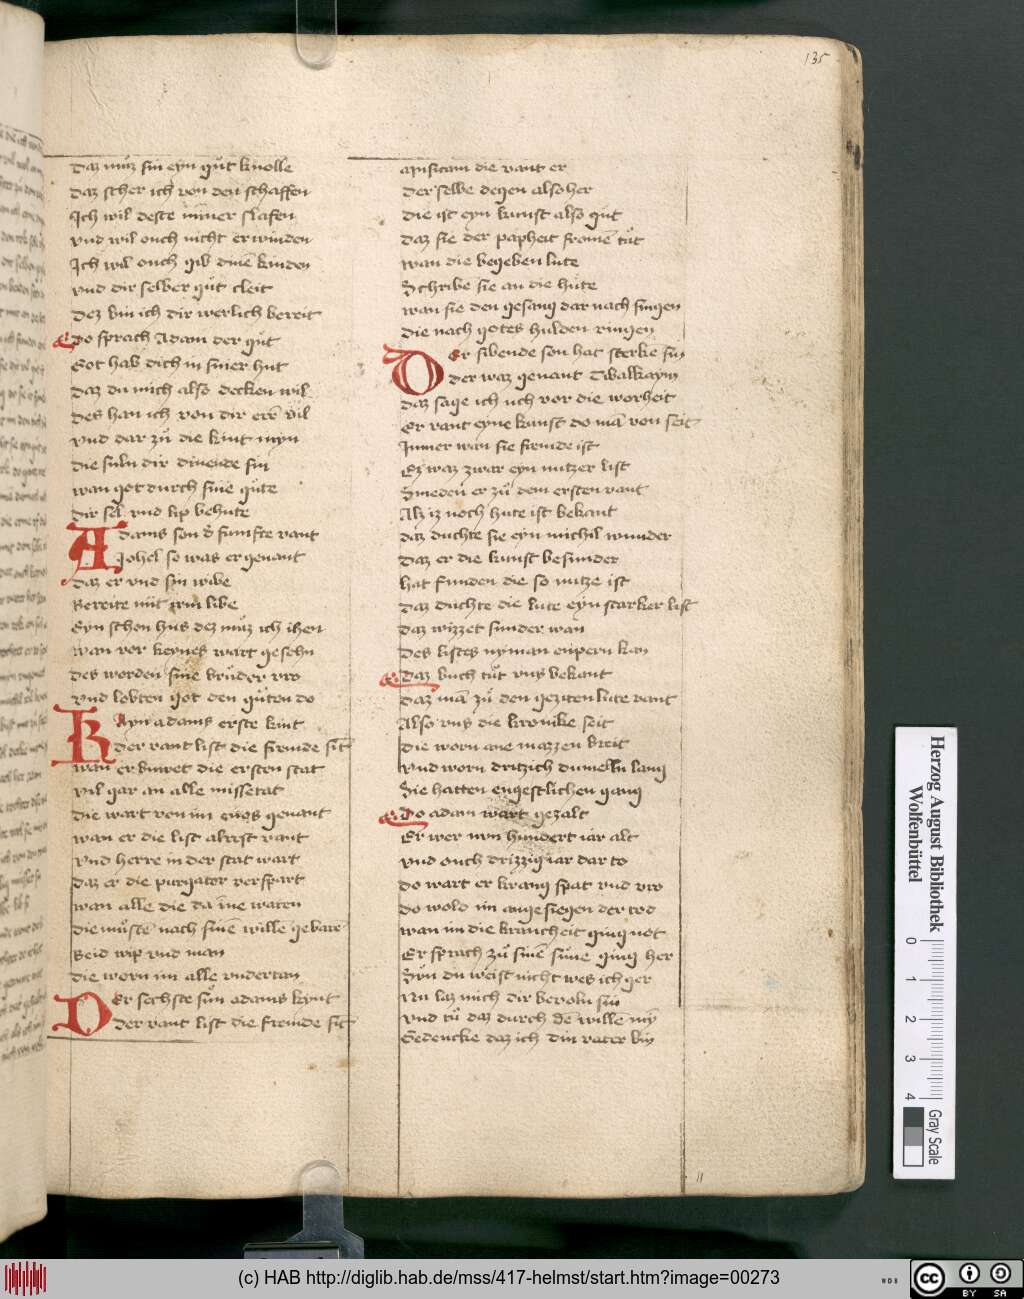 135
daz muͦz sin eyn guͦt knolle
daz scher ich von den schaffen
Ich wil deste miner slafen
vnd wil ouch nicht erwinden
Ich wil ouch gib dinē kinden
vnd dir selber guͦt cleit
Dez bin ich dir werlich bereit
Do sprach Adam der guͦt
Got hab dich in siner hut
daz du mich also decken wil
des han ich von dir ere vil
vnd dar zuͦ die kint myn
die suln dir dinende sin
wan got durch sine guͦte
dir sel vnd lip behute
Adams son d funfte vant
Johel so was er genant
daz er vnd sin wibe
Bereite mit irm libe
Eyn schon hus dez muͦz ich ihen
wan vor keynes wart gesehn
des worden sine bruͦder vro
vnd lobten got den guͦten do
Kayn adams erste kint
der vant list die fremde sit
wan er buwet die ersten stat
vil gar an alle missetat
die wart von im enos genant
wan er die list alrest vant
vnd herre in der stat wart
daz er die purgator verspart
wan alle die da īne waren
die muͦste nach sinē willē gebare
Beid wip vnd man
die worn im alle vndertan
Der sechste suͦn adams kynt
der vant list die fremde sit
musicam die vant er
der selbe degen also her
die ist eyn kunst also guͦt
daz sie der papheit fromē tuͦt
wan die begeben lute
Schribe sie an die hute
wan sie den gesang dar nach singen
die nach gotes hulden ringen
Der sibende son hat sterke sin
der waz genant Tubalkaym
daz sage ich uch vor die worheit
Er vant eyne kunst do mā von seit
Immer wan sie fremde ist
Ez waz zwar eyn nutzer list
Smeden er zuͦ dem ersten vant
Alz iz noch hute ist bekant
daz duchte sie eyn michil wunder
daz er die kunst besunder
hat funden die so nutze ist
daz duchte die lute eyn starker list
daz wizzet sunder wan
des listes nyman enpern kan
daz buch tuͦt vns bekant
daz mā zuͦ den geziten lute vant
Also vns die kronike seit
die worn ane mazzen breit
vnd worn drizich dumeln lang
Sie hatten engestlichen gang
Do adam wart gezalt
Er wer nun hundert iar alt
vnd ouch drizzig iar dar to
do wart er krang spat vnd vro
do wold im angesiegen der tod
wan im die krancheit ging not
Er sprach zuͦ sinē sune ging her
Suͦn du weist nicht wes ich ger
Nu laz mich dir bevoln sin
vnd tuͦ daz durch dē wille my
Gedencke daz ich din vater bin
11
Herzog August Bibliothek
Wolfenbüttel
0 1 2 3 4
Gray Scale
(c) HAB http://diglib.hab.de/mss/417-helmst/start.htm?image=00273
WDB
cc BY SA